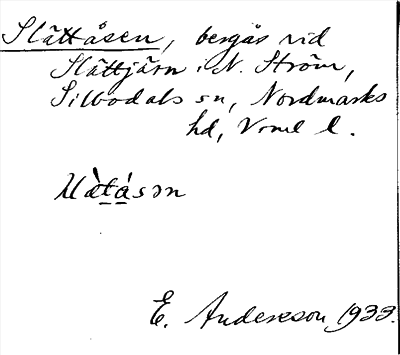 Slättåsen, bergås vid
Slättjärn i N. Ström,
Silbodals sn, Nordmarks
hd, Vrml l.
E. Andersson 1933.